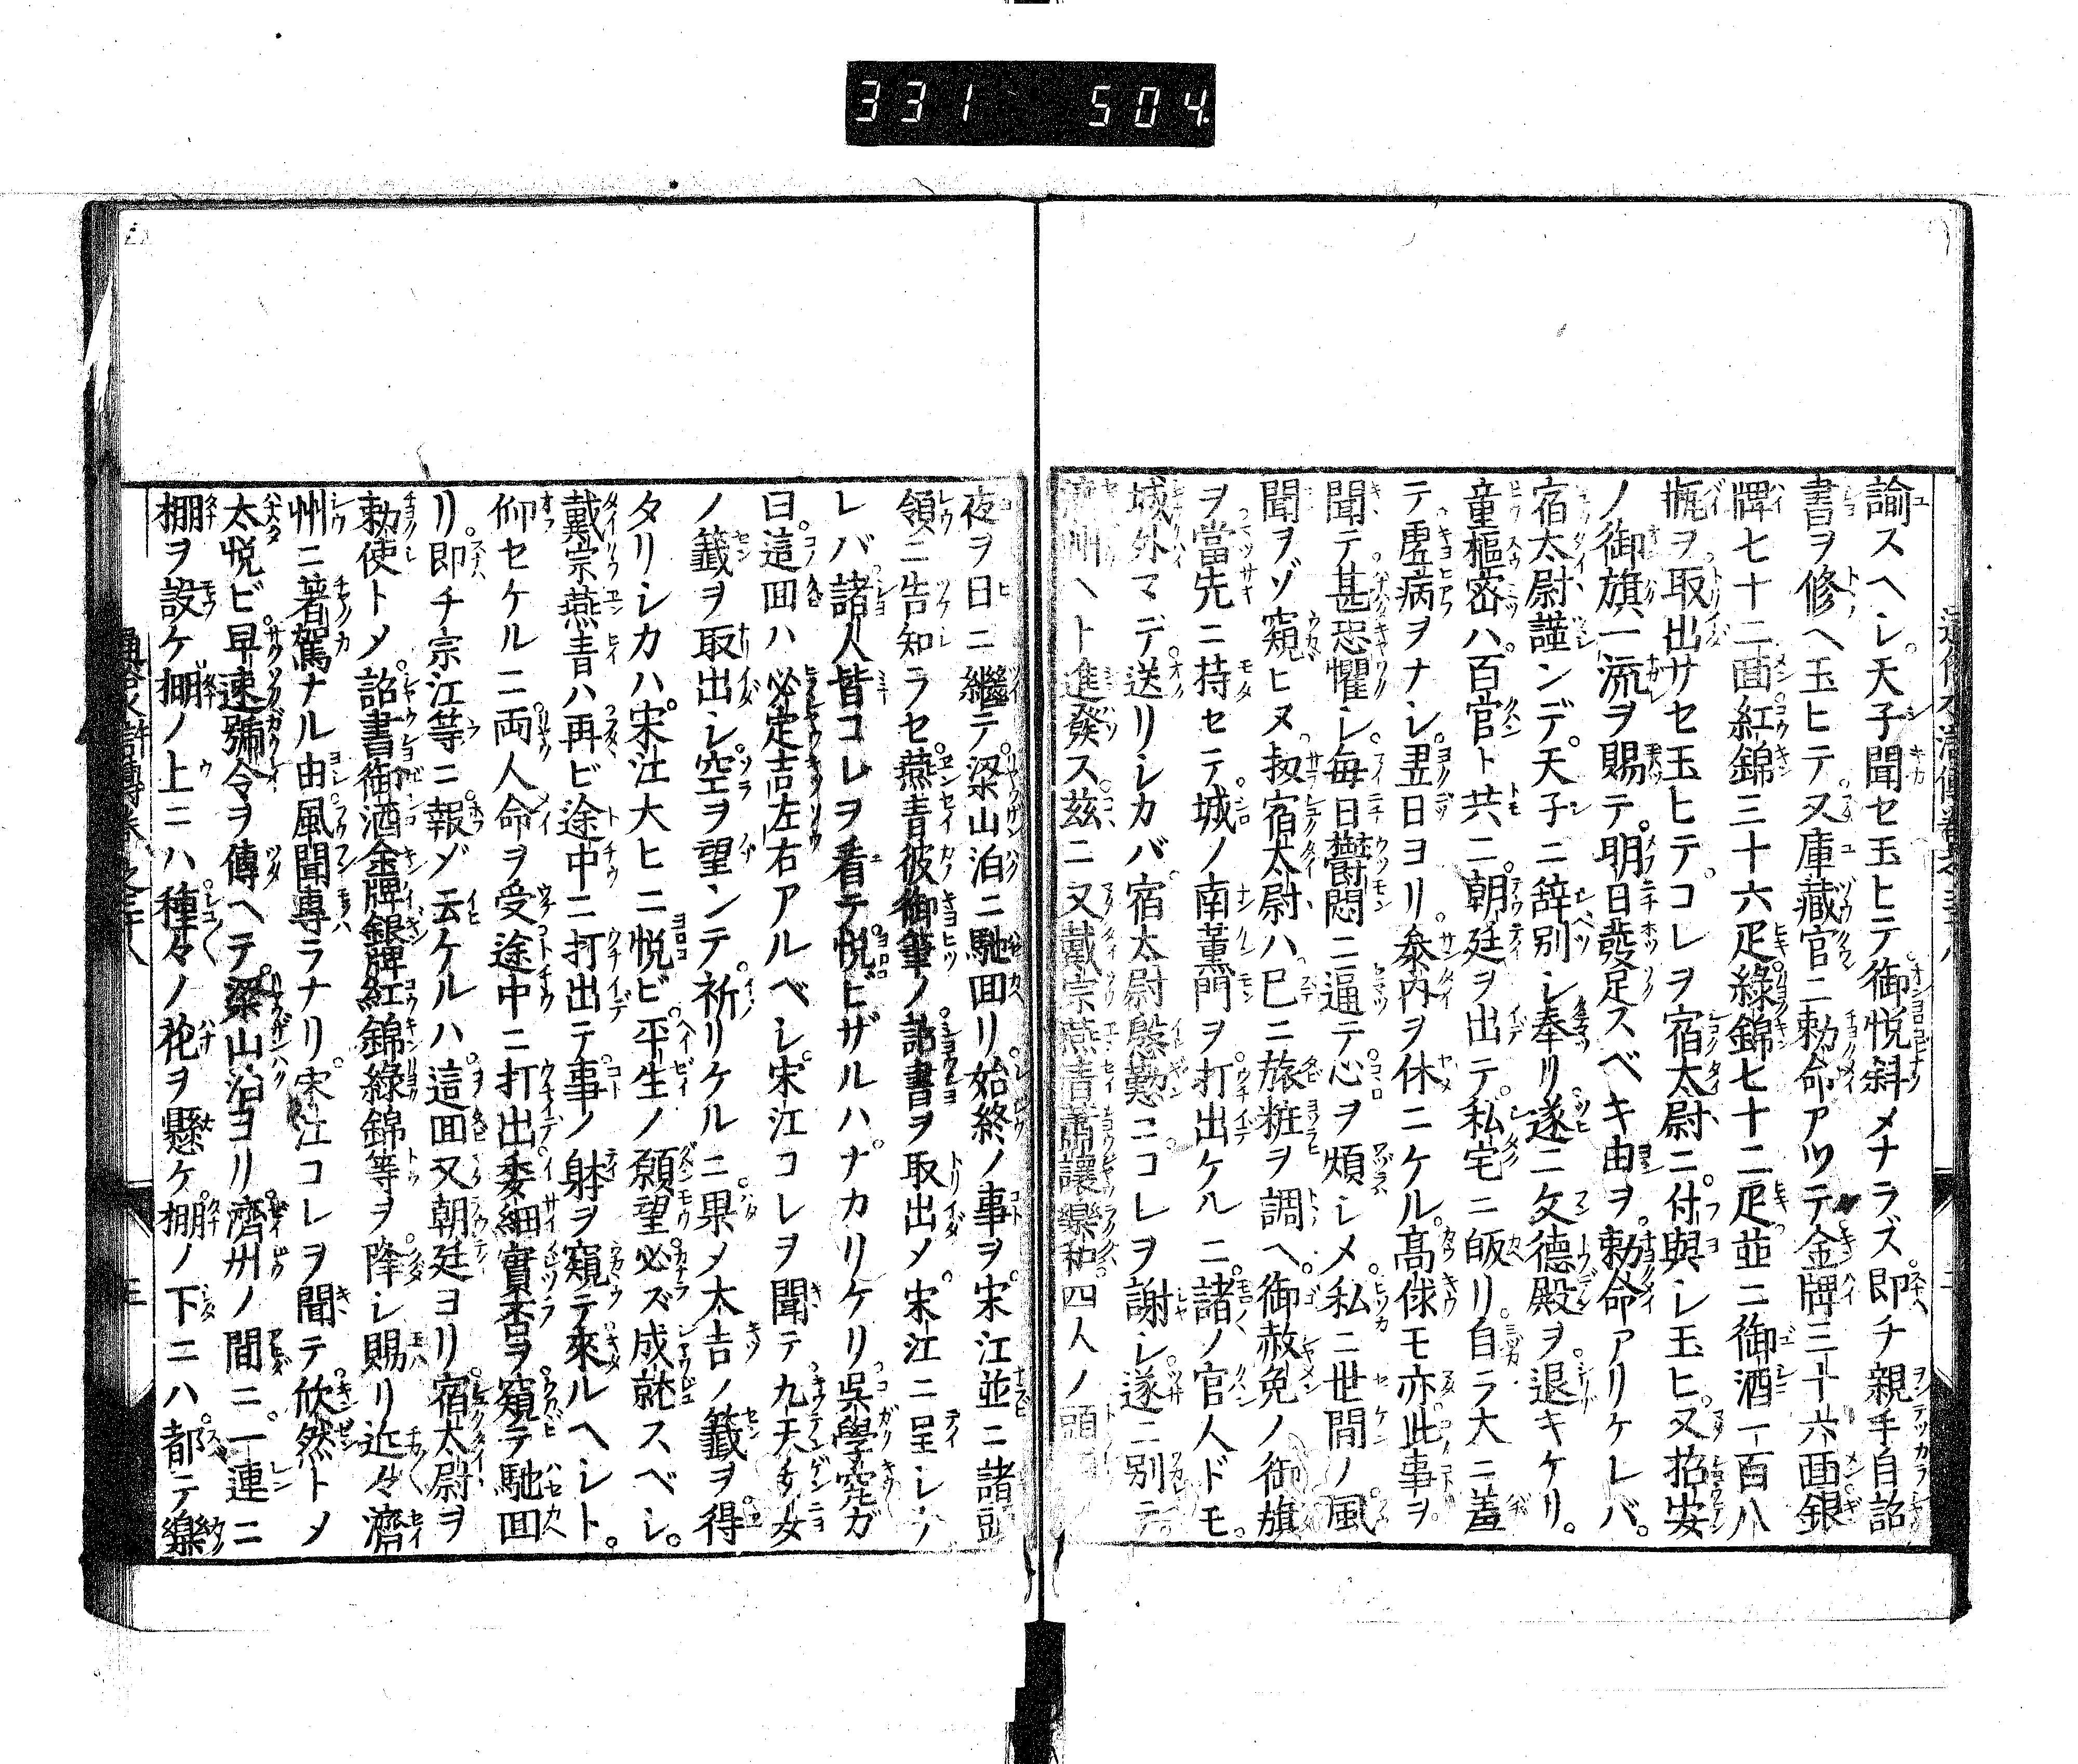 331 504.
諭スヘシ。天子聞セ玉ヒテ。御悦斜メナラズ。即チ親手自詔
書ヲ修ヘ玉ヒテ。又庫藏官ニ勅命アツテ金牌三十六面銀
牌七十二面。紅錦三十六疋。綠錦七十二疋並ニ御酒一百八
瓶ヲ取出サセ玉ヒテ。コレヲ宿太尉ニ。付與シ玉ヒ。又招安
ノ御旗。一流ヲ賜テ。明日發足スベキ由ヲ。勅命アリケレバ。
宿太尉謹ンデ。天子ニ辞別シ奉リ。遂ニ文德殿ヲ退キケリ。
童樞密ハ。百官ト共ニ。朝廷ヲ出テ。私宅ニ皈リ。自ラ大ニ羞
テ。虚病ヲナシ。翌日ヨリ。參内ヲ休ニケル。髙俅モ亦此事ヲ。
聞テ。甚恐懼シ。毎日鬱悶ニ逼テ。心ヲ煩シメ。私ニ世間ノ風
聞ヲゾ。窺ヒヌ。扨宿太尉ハ。巳ニ旅粧ヲ調ヘ。御赦免ノ御旗
ヲ。當先ニ持セテ。城ノ南薰門ヲ。打出ケルニ。諸ノ官人ドモ。
城外マデ。送リシカバ。宿太尉慇懃ニ。コレヲ謝シ。遂ニ別テ。
濟州ヘト進發ス。茲ニ又戴宗燕青蕭讓樂和。四人ノ頭
夜ヲ日ニ繼テ。梁山泊ニ馳囬リ。始終ノ事ヲ。宋江並ニ諸頭
領ニ告知ラセ。燕青彼御筆ノ詔書ヲ取出メ。宋江ニ呈シ
レバ。諸人皆コレヲ看テ。悦ビザルハ。ナカリケリ。呉學究ガ
曰。這囬ハ必定吉左右アルベシ。宋江コレヲ聞テ。九天玄女
ノ籤ヲ取出シ。空ヲ望ンテ。祈リケルニ。果メ大吉ノ籤ヲ得
タリシカハ。宋江大ヒニ悦ビ。平生ノ願望必ズ成就スベシ。
戴宗燕青ハ。再ビ途中ニ打出テ。事ノ躰ヲ窺テ。來ルヘシト。
仰セケルニ。両人命ヲ受。途中ニ打出。委細實否ヲ。窺テ馳囬
リ。即チ宗江等ニ。報ゾ云ケルハ。這囬又朝廷ヨリ。宿太尉ヲ
勅使トメ。詔書御酒。金牌銀牌。紅錦綠錦等ヲ。降シ賜リ。近々濟
州ニ著駕ナル由。風聞專ラナリ。宋江コレヲ聞テ。欣然トメ
太悦ビ。早速號令ヲ傳ヘテ。梁山泊ヨリ。濟州ノ間ニ。一連ニ
棚ヲ設ケ。棚ノ上ニハ。種々ノ花ヲ懸ケ。棚ノ下ニハ。都テ樂